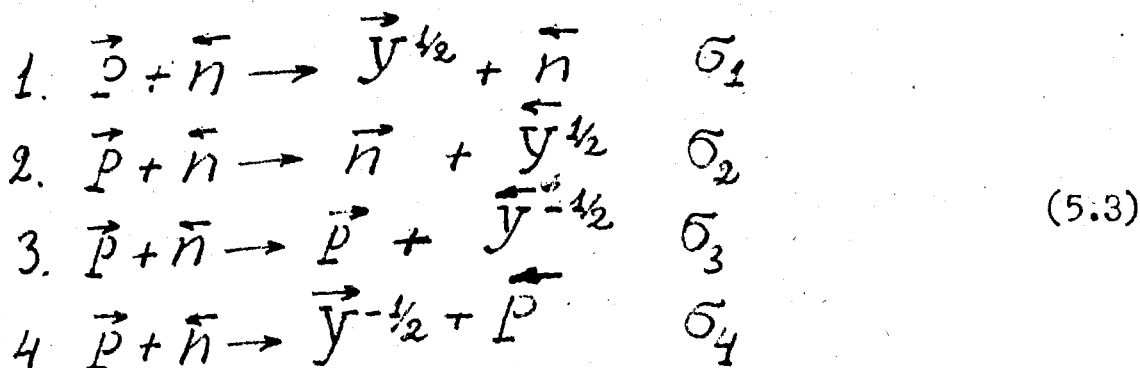 1. p⃗ + n⃖ → y⃗^{1/2} + n⃖ σ₁
2. p⃗ + n⃖ → n⃗ + y⃖^{1/2} σ₂
3. p⃗ + n⃖ → p⃗ + y⃖^{-1/2} σ₃
(5.3)
4 p⃗ + n⃖ → y⃗^{-1/2} + p⃖ σ₄